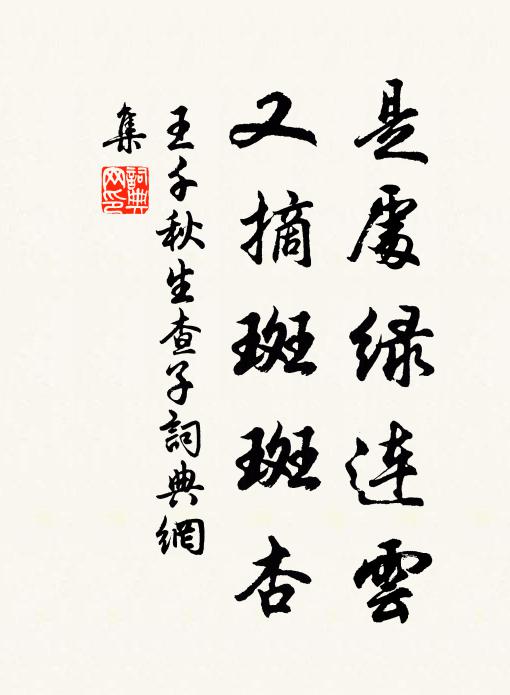 是處綠連雲
又摘斑斑杏
王千秋生查子詞典網
集
詞典
网印